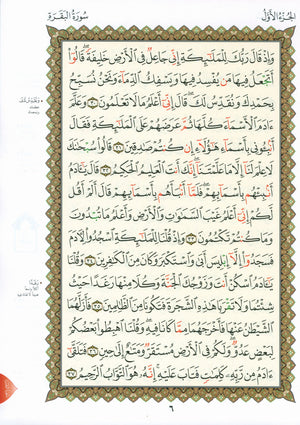 الجزء الأول
سورة البقرة
وَإِذْ قَالَ رَبُّكَ لِلْمَلَٰٓئِكَةِ إِنِّى جَاعِلٌ فِى ٱلْأَرْضِ خَلِيفَةً قَالُوٓا۟
أَتَجْعَلُ فِيهَا مَن يُفْسِدُ فِيهَا وَيَسْفِكُ ٱلدِّمَآءَ وَنَحْنُ نُسَبِّحُ
بِحَمْدِكَ وَنُقَدِّسُ لَكَ قَالَ إِنِّىٓ أَعْلَمُ مَا لَا تَعْلَمُونَ ٣٠ وَعَلَّمَ
ءَادَمَ ٱلْأَسْمَآءَ كُلَّهَا ثُمَّ عَرَضَهُمْ عَلَى ٱلْمَلَٰٓئِكَةِ فَقَالَ
أَنۢبِـُٔونِى بِأَسْمَآءِ هَٰٓؤُلَآءِ إِن كُنتُمْ صَٰدِقِينَ ٣١ قَالُوا۟ سُبْحَٰنَكَ
لَا عِلْمَ لَنَآ إِلَّا مَا عَلَّمْتَنَآ إِنَّكَ أَنتَ ٱلْعَلِيمُ ٱلْحَكِيمُ ٣٢ قَالَ يَٰٓـَٔادَمُ
أَنۢبِئْهُم بِأَسْمَآئِهِمْ فَلَمَّآ أَنۢبَأَهُم بِأَسْمَآئِهِمْ قَالَ أَلَمْ أَقُل
لَّكُمْ إِنِّىٓ أَعْلَمُ غَيْبَ ٱلسَّمَٰوَٰتِ وَٱلْأَرْضِ وَأَعْلَمُ مَا تُبْدُونَ
وَمَا كُنتُمْ تَكْتُمُونَ ٣٣ وَإِذْ قُلْنَا لِلْمَلَٰٓئِكَةِ ٱسْجُدُوا۟ لِـَٔادَمَ
فَسَجَدُوٓا۟ إِلَّآ إِبْلِيسَ أَبَىٰ وَٱسْتَكْبَرَ وَكَانَ مِنَ ٱلْكَٰفِرِينَ ٣٤ وَقُلْنَا
يَٰٓـَٔادَمُ ٱسْكُنْ أَنتَ وَزَوْجُكَ ٱلْجَنَّةَ وَكُلَا مِنْهَا رَغَدًا حَيْثُ
شِئْتُمَا وَلَا تَقْرَبَا هَٰذِهِ ٱلشَّجَرَةَ فَتَكُونَا مِنَ ٱلظَّٰلِمِينَ ٣٥ فَأَزَلَّهُمَا
ٱلشَّيْطَٰنُ عَنْهَا فَأَخْرَجَهُمَا مِمَّا كَانَا فِيهِ وَقُلْنَا ٱهْبِطُوا۟ بَعْضُكُمْ
لِبَعْضٍ عَدُوٌّ وَلَكُمْ فِى ٱلْأَرْضِ مُسْتَقَرٌّ وَمَتَٰعٌ إِلَىٰ حِينٍ ٣٦ فَتَلَقَّىٰٓ
ءَادَمُ مِن رَّبِّهِۦ كَلِمَٰتٍ فَتَابَ عَلَيْهِ إِنَّهُۥ هُوَ ٱلتَّوَّابُ ٱلرَّحِيمُ ٣٧
٦